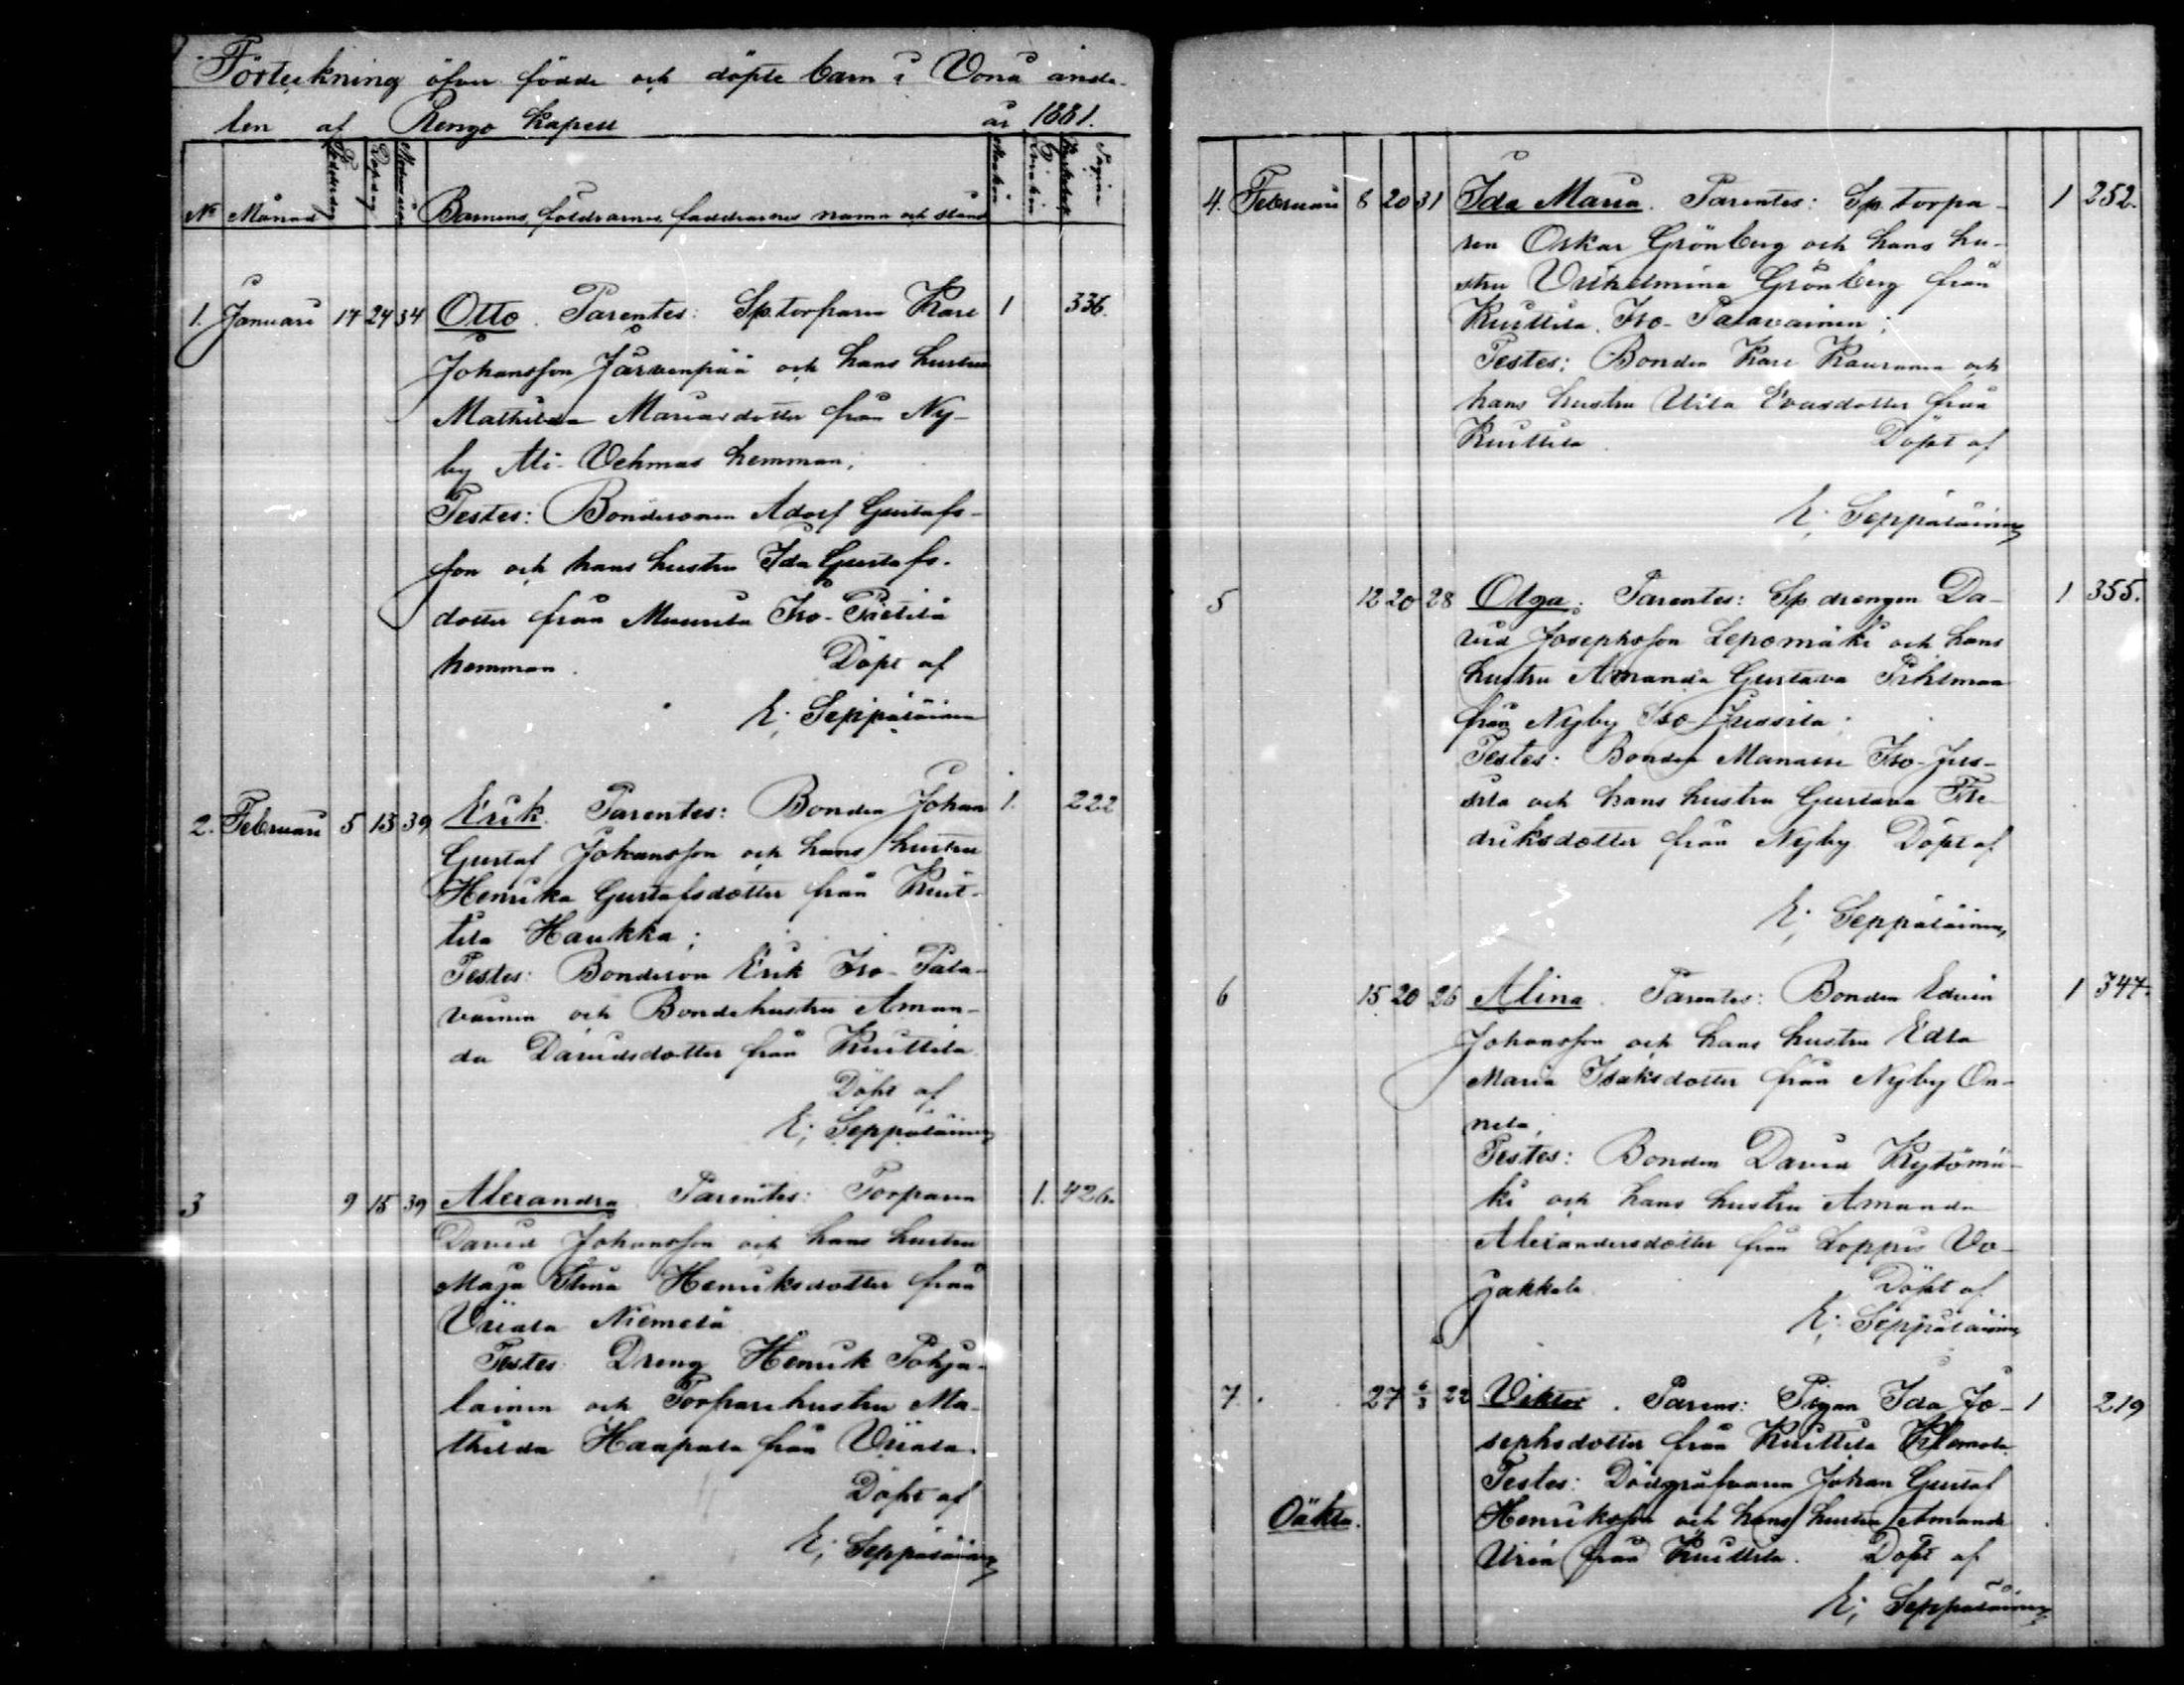 Förteckning öfver födde och döpte barn i Vonå ande-
len af Rengo Kapell år 1881.
No Månad Födelsedag Dopdag Barnens, föräldrarnes, faddrarnes namn och stånd Mankön Qvinkön Pagina
1. Januari 17 24 34 Otto. Parentes: Sp. torparen Karl 1 336.
Johansson Järvenpää och hans hustru
Mathilda Mariasdotter från Ny-
by Ali-Vehmas hemman;
Testes: Bondesonen Adolf Gustafs-
son och hans hustru Ida Gustafs-
dotter från Muurila Iso-Pietilä
hemman. Döpt af
K; Seppäläinen
2. Februari 5 13 39 Erik. Parentes: Bonden Johan 1. 222
Gustaf Johansson och hans hustru
Henrika Gustafsdotter från Kuit-
tila Haukka;
Testes: Bondeson Erik Iso-Pala-
vainen och Bondehustru Aman-
da Davidsdotter från Kuittila
Döpt af
K; Seppäläinen
3 9 15 39 Alexandra Parentes: Torparen 1. 426.
David Johansson och hans hustru
Maja Stina Henriksdotter från
Uriala Niemelä
Testes: Dreng Henrik Pohja-
lainen och Torparehustru Ma-
thilda Haapala från Uriala.
Döpt af
K; Seppäläinen
4. Februari 8 20 31 Ida Maria. Parentes: Sp. torpa- 1 252.
ren Oskar Grönberg och hans hu-
stru Vilhelmina Grönberg från
Kuittila. Iso-Palavainen;
Testes: Bonden Karl Kauranen och
hans hustru Ulla Evasdotter från
Kuittila. Döpt af
K; Seppäläinen
5 12 20 28 Olga. Parentes: Sp. drengen Da- 1 355.
vid Josephsson Lepomäki och hans
hustru Amanda Gustava Pihlman
från Nyby Iso-Jussila;
Testes: Bonden Manasse Iso-Jus-
sila och hans hustru Gustava Fre-
driksdotter från Nyby Döpt af
K; Seppäläinen
6 15 20 26 Alina. Parentes: Bonden Edvin 1 347.
Johansson och hans hustru Edla
Maria Isaksdotter från Nyby On-
nela;
Testes: Bonden David Kytömä-
ki och hans hustru Amanda
Alexandersdotter från Loppis Vo-
jakkala Döpt af
K; Seppäläinen
7. 27 6/3 22 Viktor. Parens: Pigan Ida Jo- 1 219
sephsdotter från Kuittila Klemola
Testes: Dödgräfvaren Johan Gustaf
Oäkta. Henriksson och hans hustru Amanda
från Kuittila. Döpt af
K; Seppäläinen